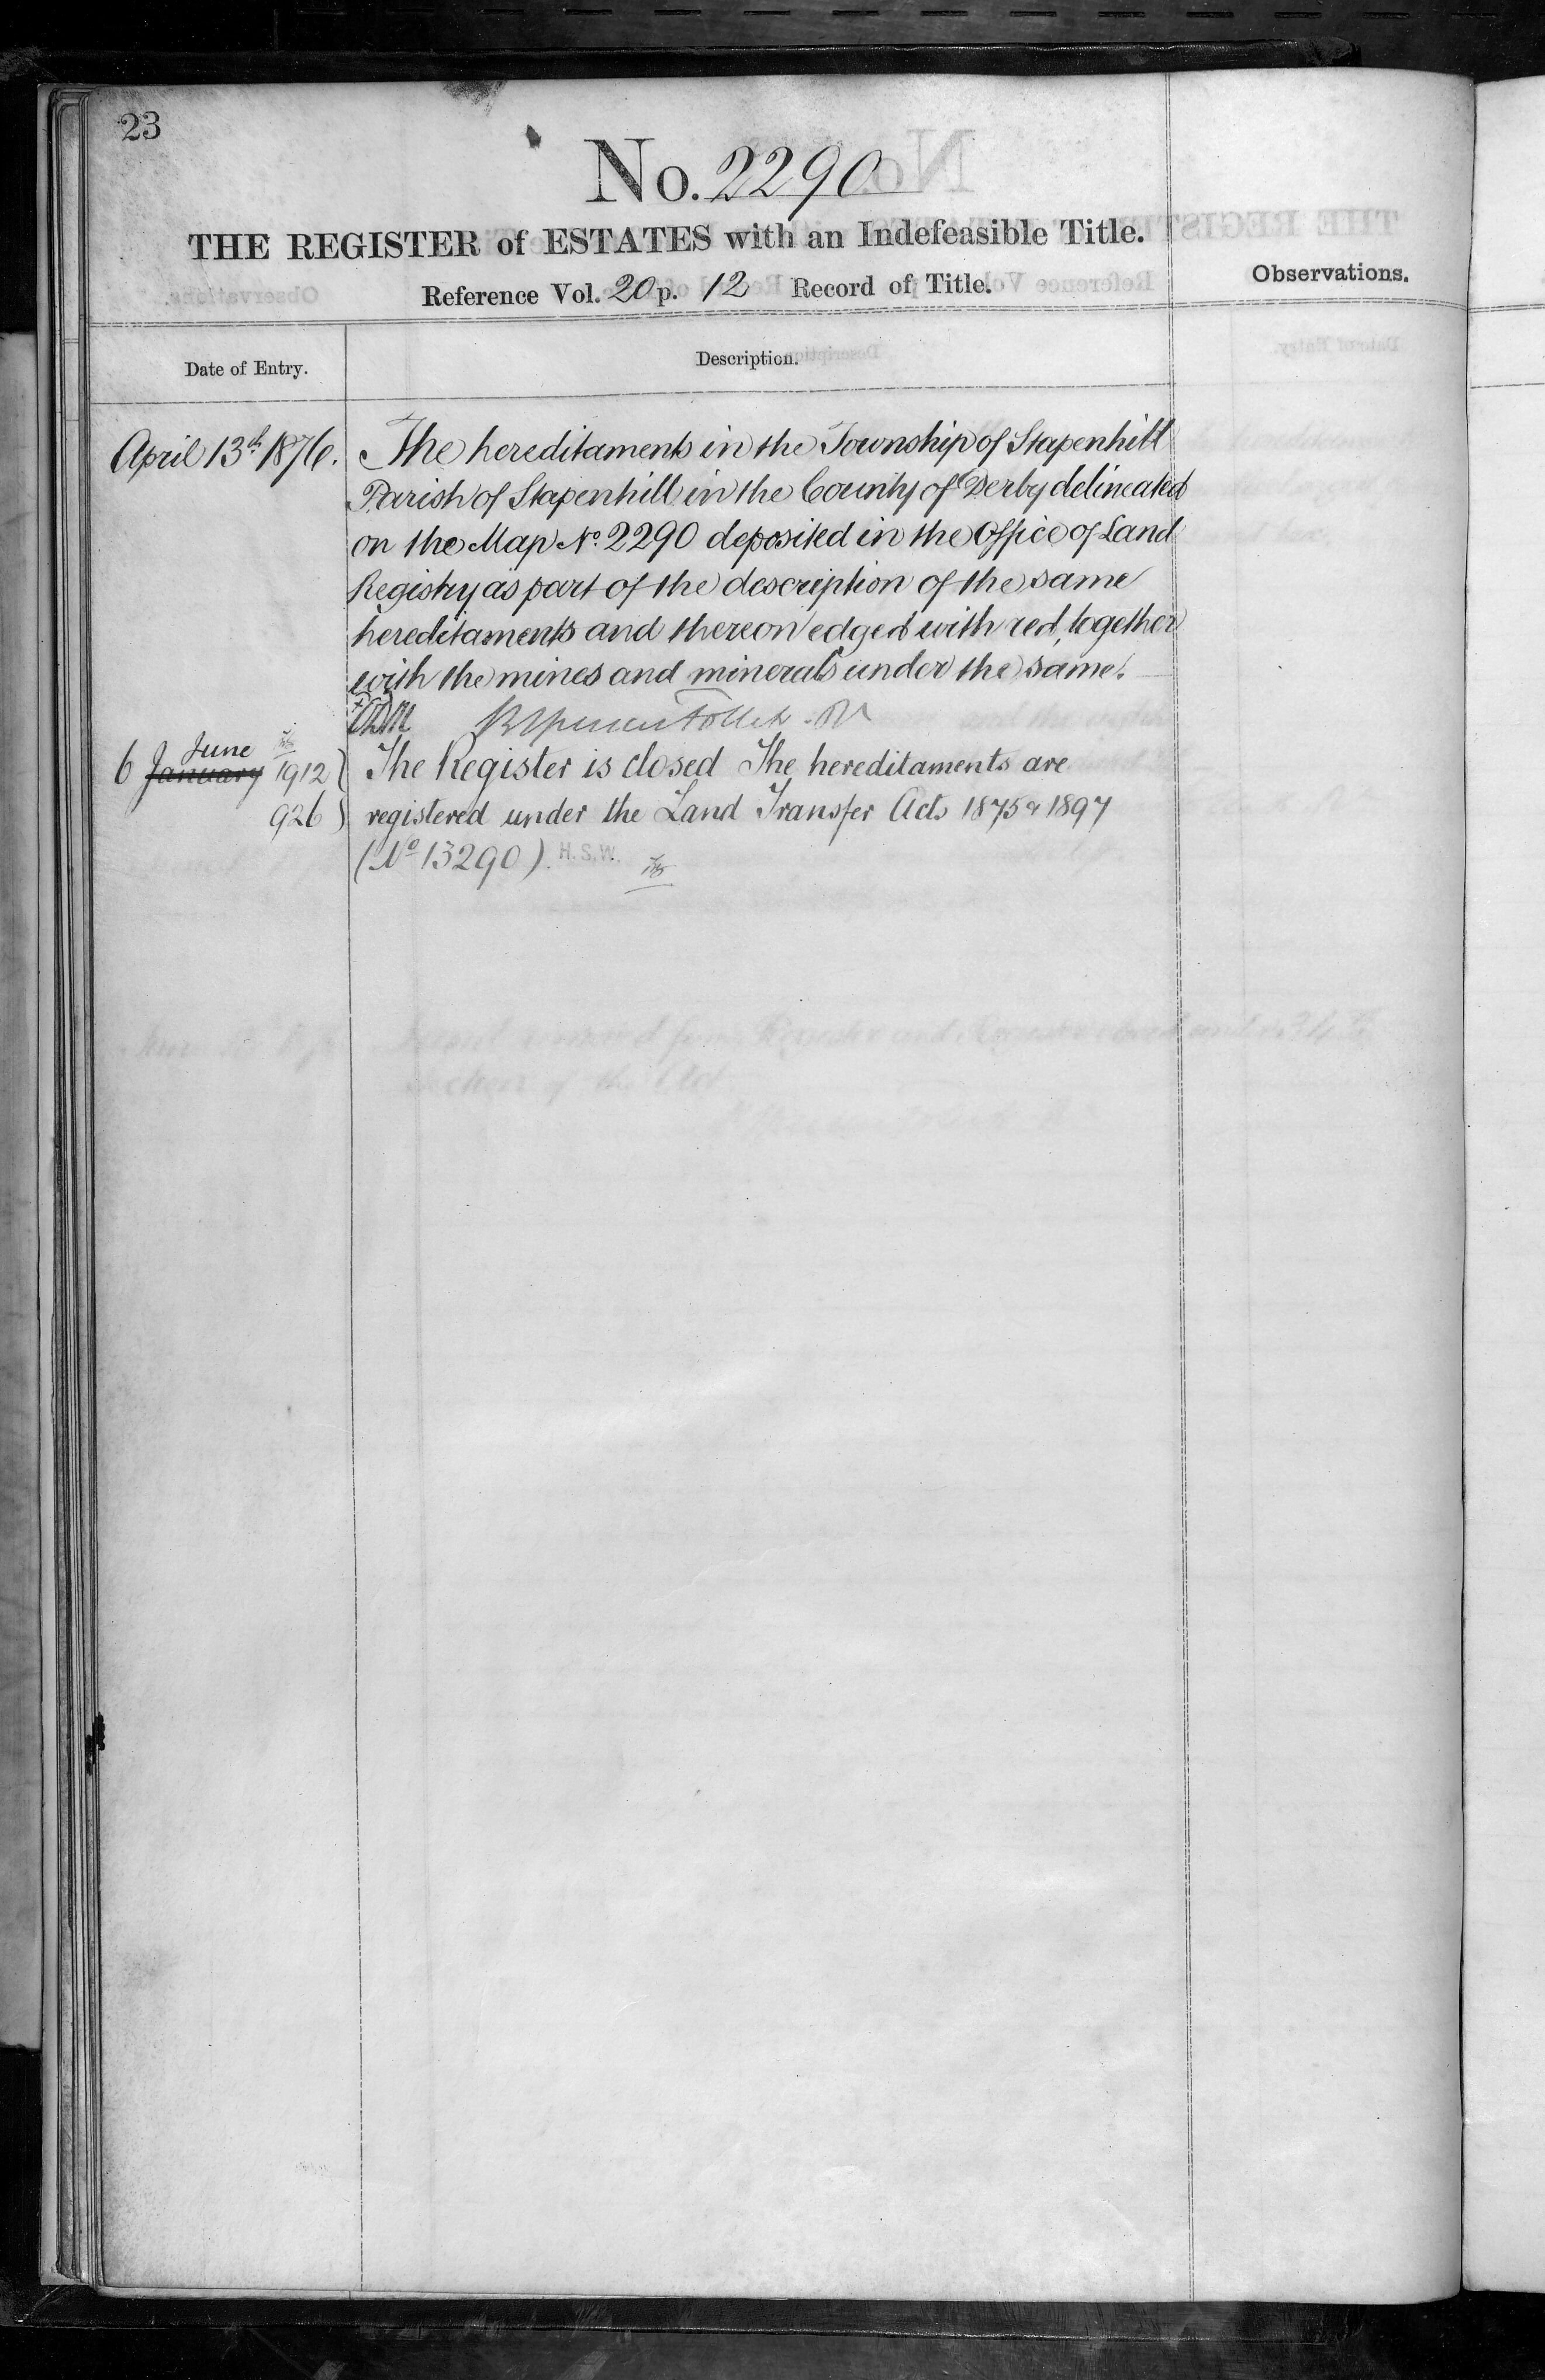 23
No. 2290
THE REGISTER of ESTATES with an Indefeasible Title.
Reference Vol. 20 p. 12 Record of Title.
Observations.
Date of Entry.
Description.
April 13th 1876.
The hereditaments in the Township of Stapenhill
Parish of Stapenhill in the County of Derby delineated
on the Map No. 2290 deposited in the Office of Land
Registry as part of the description of the same
hereditaments and thereon edged with red, together
with the mines and minerals under the same.
6 January June 1912
926
The Register is closed The hereditaments are
registered under the Land Transfer Acts 1875 & 1897
(No 13290). H.S.W.